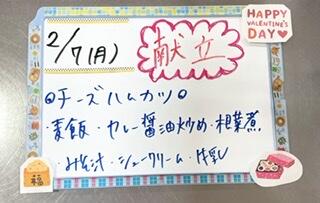 HAPPY
VALENTINE'S
DAY
2/7(月)
献立
◎チーズハムカツ◎
・麦飯・カレー醤油炒め・相葉煮
・みそ汁・シュークリーム・牛乳
福